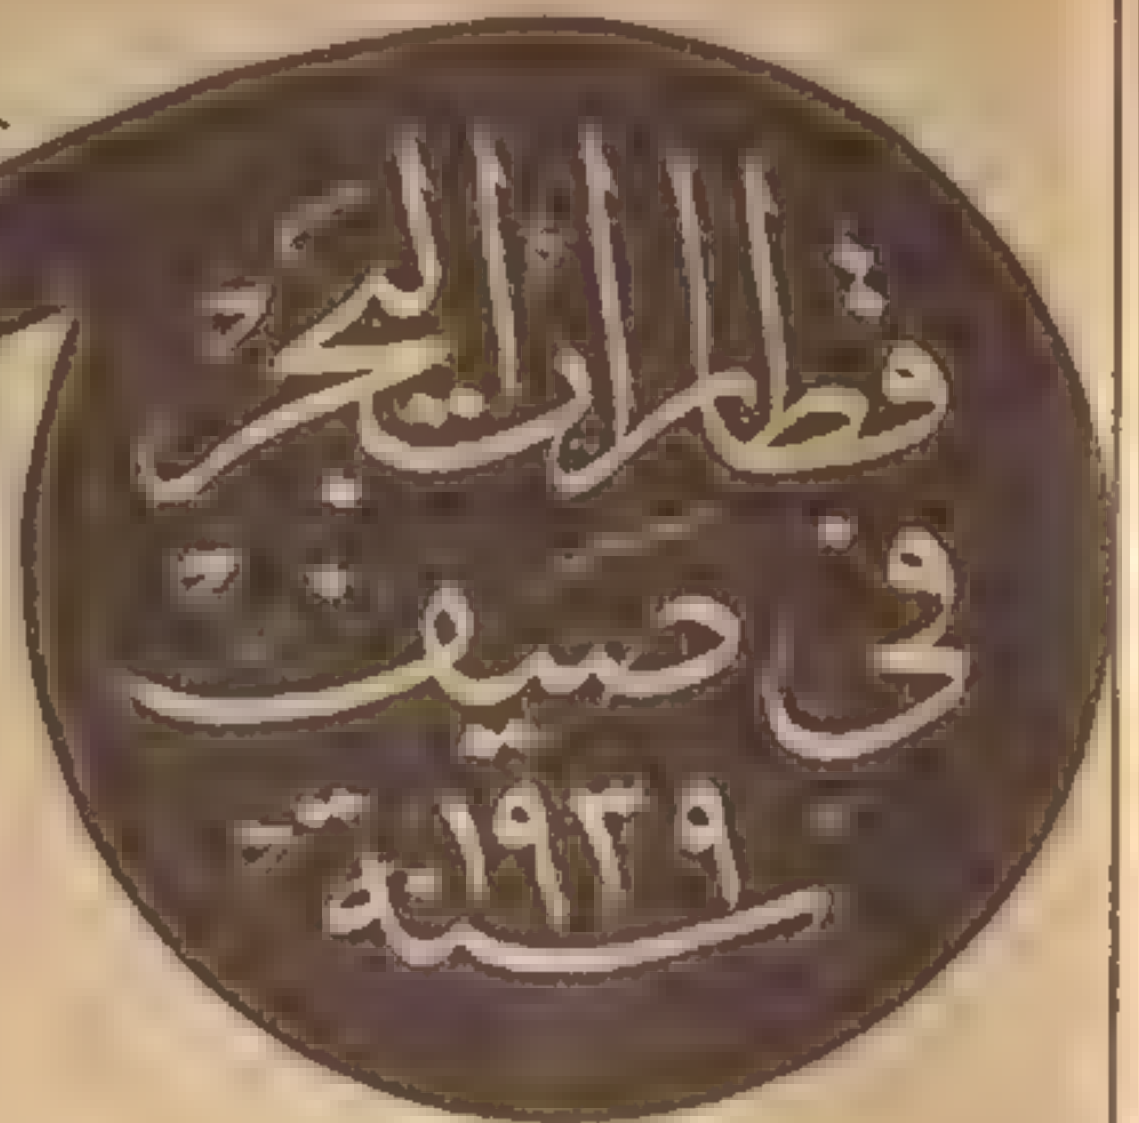 قطارات البحر
في صيف
سنة ١٩٣٩